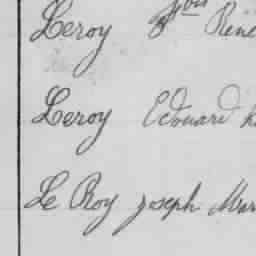 Leroy René
Leroy Edouard
Le Roy Joseph Mar